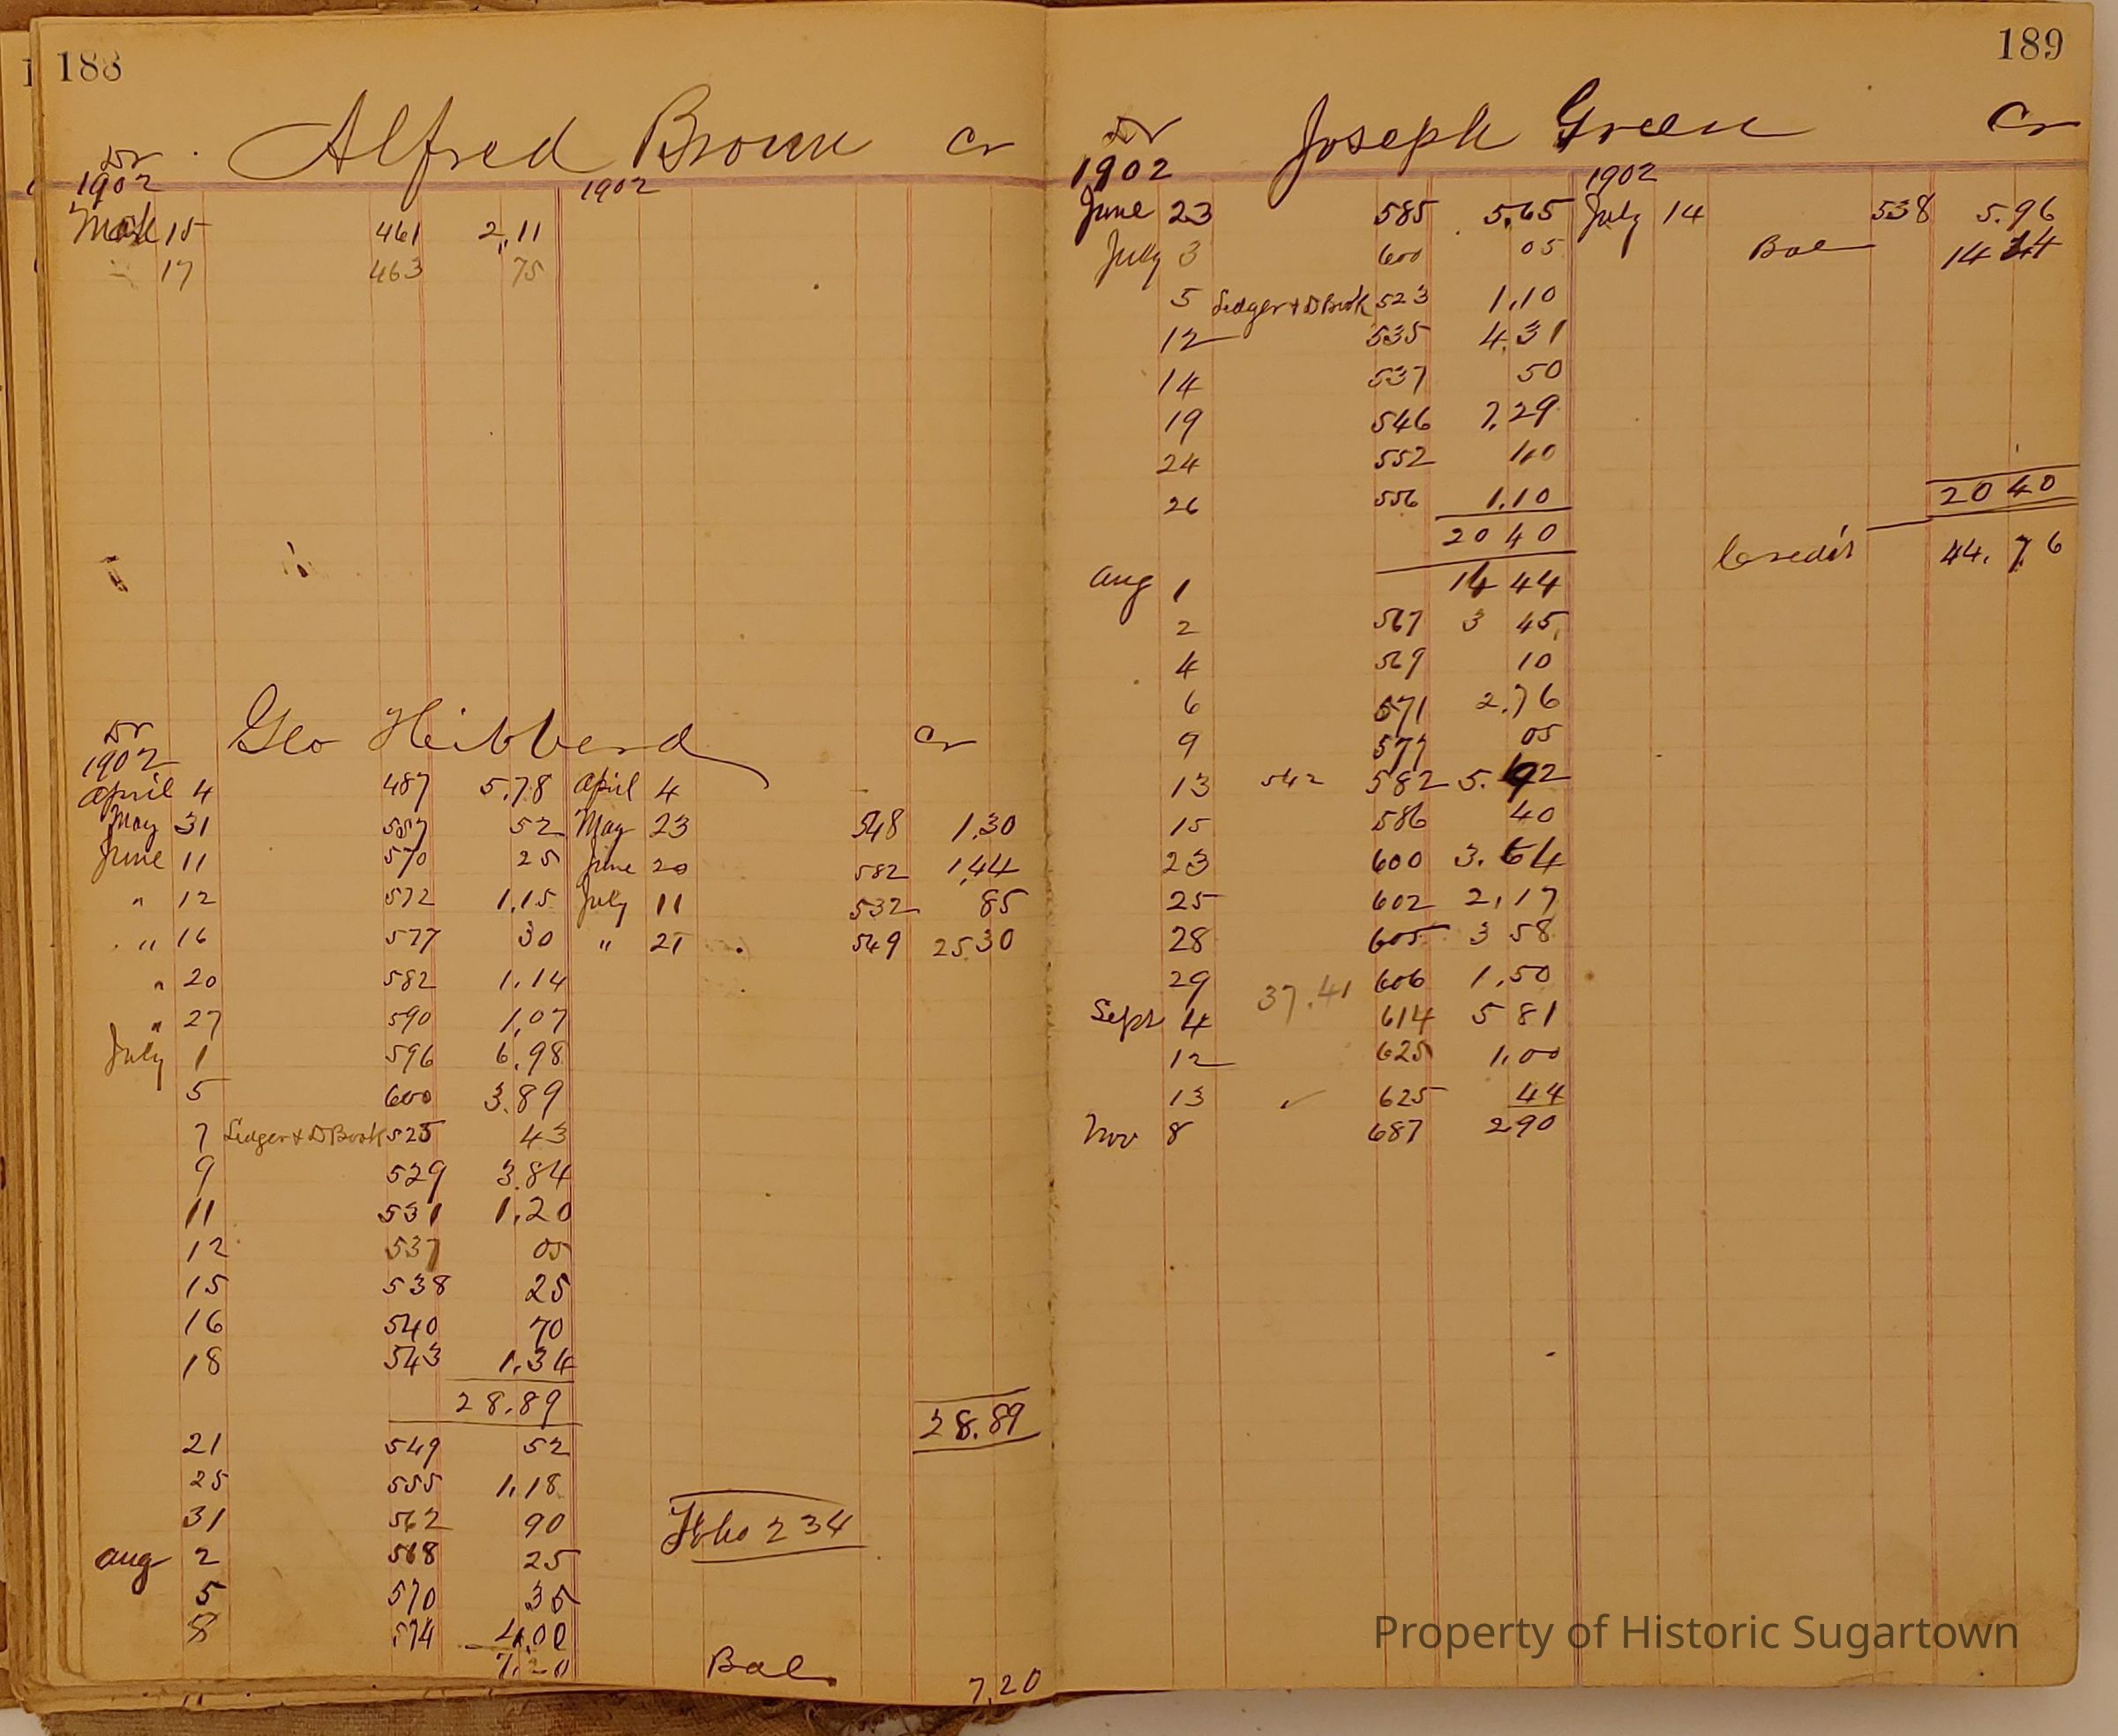 188
Alfred Brown
Dr Cr
1902 1902
March 15 461 2,11
17 463 75
Geo Hibberd
Dr Cr
1902
April 4 487 5.78 April 4
May 31 557 52 May 23 548 1.30
June 11 570 25 June 20 582 1,44
" 12 572 1.15 July 11 532 85
" 16 577 30 " 21 549 25 30
" 20 582 1.14
" 27 590 1,07
July 1 596 6.98
5 600 3.89
7 Ledger & D Book 525 43
9 529 3.84
11 531 1.20
12 537 05
15 538 25
16 540 70
18 543 1.34
28.89 28.89
21 549 52
25 555 1.18
31 562 90
Aug 2 568 25
5 570 35
8 574 4.00
7.20 Bal 7,20
Folio 234
189
Dr Joseph Green Cr
1902 1902
June 23 585 5.65 July 14 538 5.96
July 3 600 05 Bal 14 44
5 Ledger & D Book 523 1.10
12 535 4.31
14 537 50
19 546 7.29
24 552
26 556 1.10 20 40
20 40
Credit 44.76
Aug 1 14 44
2 567 3 45
4 569 10
6 571 2.76
9 577 05
13 542 582 5.92
15 586 40
23 600 3.64
25 602 2,17
28 605 3 58
29 606 1.50
37.41
Sept 4 614 5 81
12 625 1.00
13 ✓ 625 44
Nov 8 687 2 90
Property of Historic Sugartown